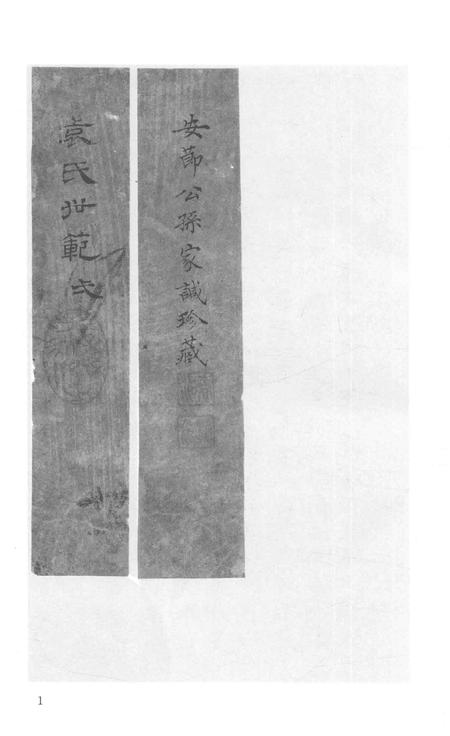 安節公孫家誠珍藏
袁氏世範
1